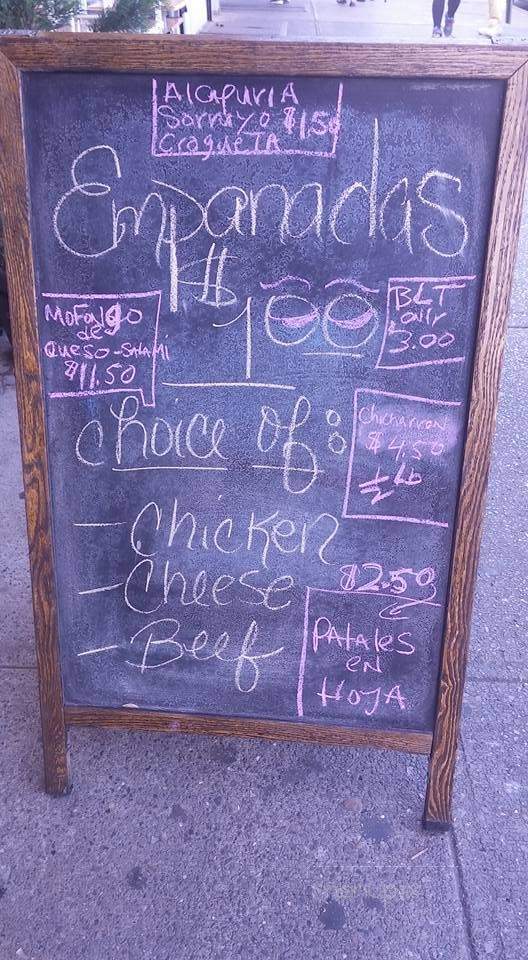 AlapuriA
Sorruyo $1.50
CroqueTA
Empanadas
$1.00
MoFongo
de
Queso-SALAMI
$11.50
BLT
only
3.00
choice of:
Chicharron
$4.50
½ Lb
- Chicken
- Cheese
- Beef
$2.50
PAtAles
EN
HoJA